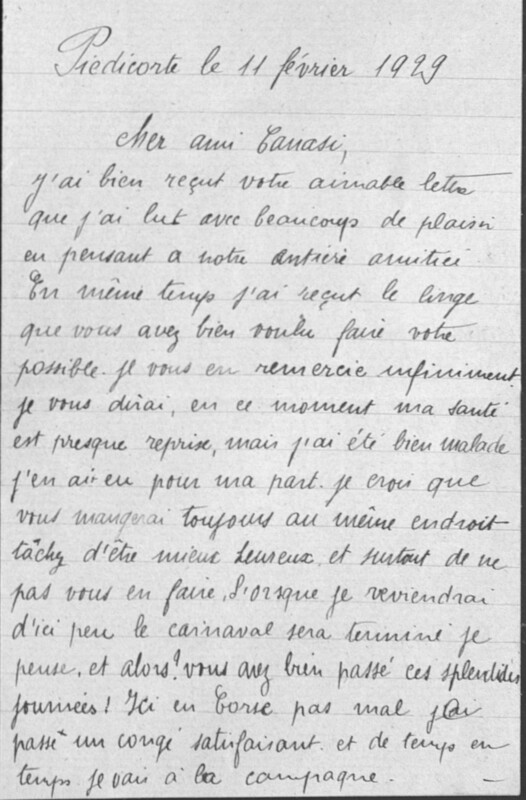 Piedicorte le 11 février 1929
Cher ami Canasi,
y'ai bien reçut votre aimable lettre
que j'ai lut avec beaucoup de plaisir
en pensant a notre entière amitiéi
En même temps j'ai reçut le linge
que vous avez bien voulu faire votre
possible. Je vous en remercie infiniment
je vous dirai, en ce moment ma santé
est presque reprise, mais j'ai été bien malade
j'en ai eu pour ma part. je crois que
vous mangerai toujours au même endroit
tâchez d'être mieux heureux, et surtout de ne
pas vous en faire. L'orsque je reviendrai
d'ici peu le carnaval sera terminé je
pense, et alors! vous avez bien passé ces splendides
journées! Ici en Corse pas mal j'ai
passé un congé satisfaisant. et de temps en
temps je vais à la campagne. —